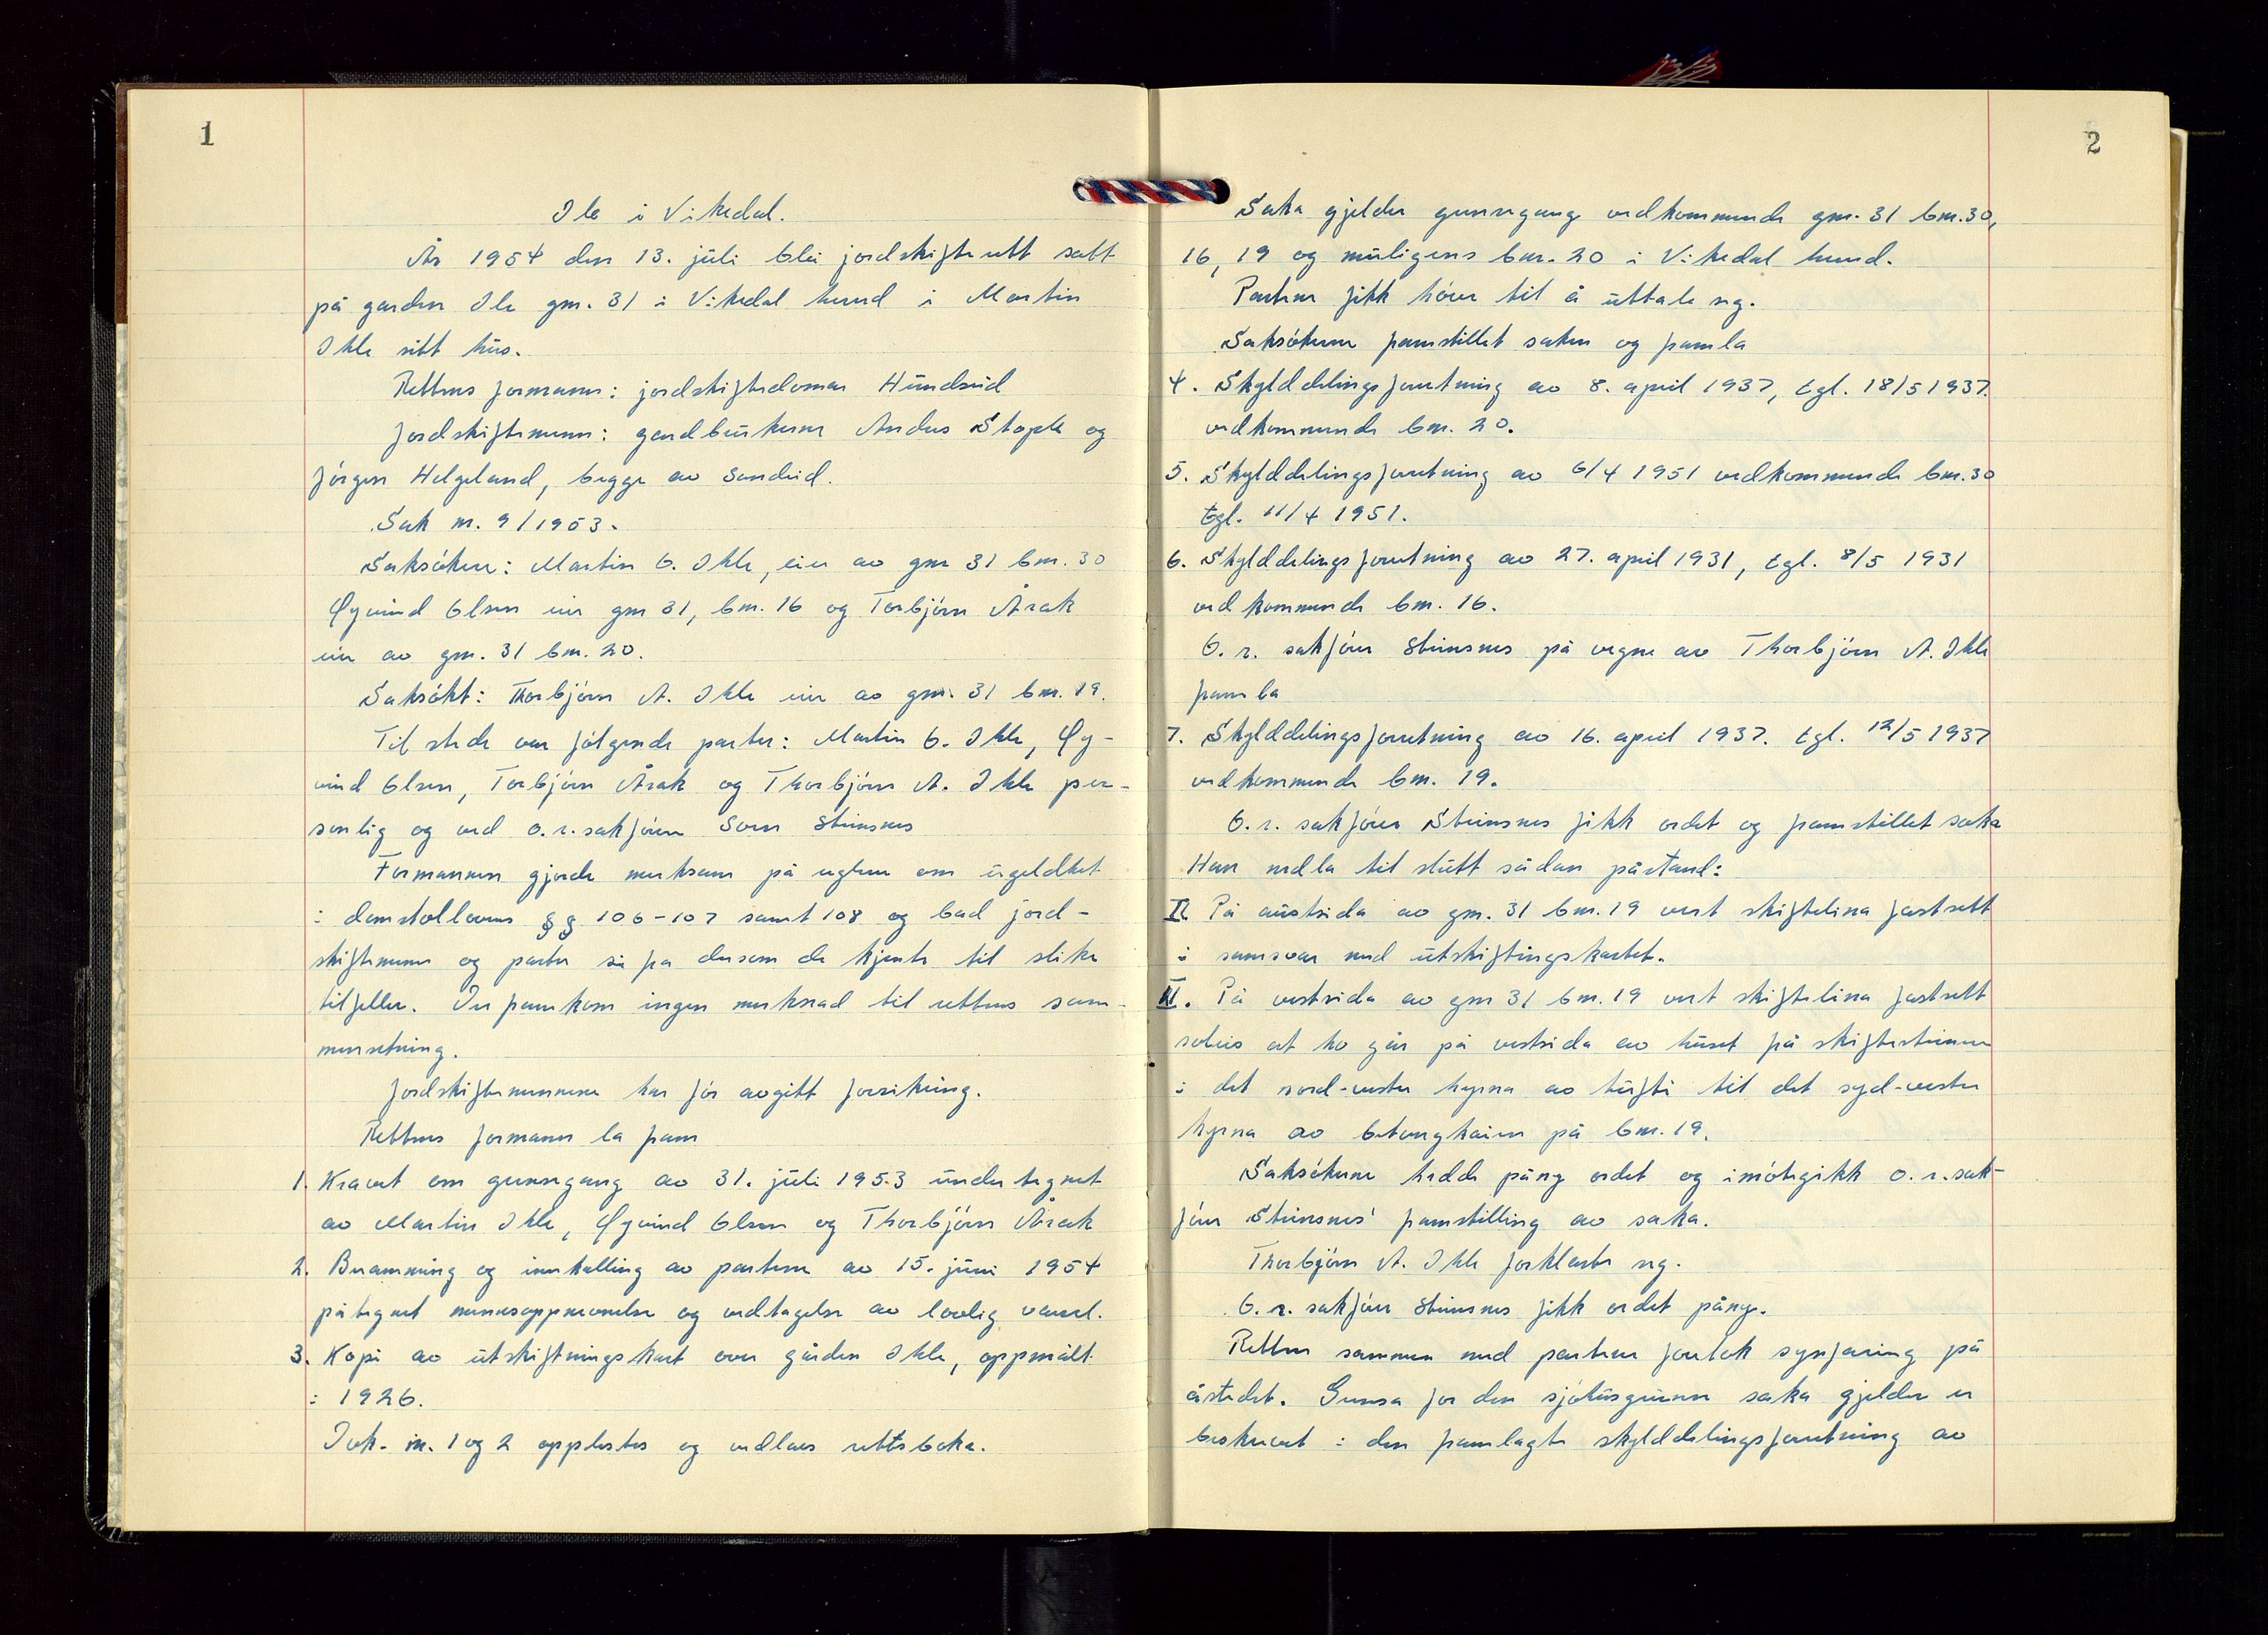 1
Ile i Vikedal.
År 1954 den 13. juli blei jordskifterett satt
på garden Ile gnr. 31 i Vikedal herad i Martin
Ikle sitt hus.
Rettens formann: jordskiftedomar Hundseid
Jordskiftemenn: gardbrukerne Andres Stople og
Jørgen Helgeland, begge av Sandeid.
Sak nr. 9/1953.
Saksøkere: Martin O. Ikle, eier av gnr 31 bnr. 30
Øyvind Olsen eier gnr 31, bnr. 16 og Torbjørn Årak
eier av gnr. 31 bnr. 20.
Saksøkt: Thorbjørn A. Ikle eier av gnr. 31 bnr. 19.
Til stede var følgende parter: Martin O. Ikle, Øy-
vind Olsen, Torbjørn Årak og Thorbjørn A. Ikle per-
sonlig og ved o.r.sakfører Sven Steinsnes
Formannen gjorde merksam på reglene om ugeldhet
i domstollovens §§ 106-107 samt 108 og bad jord-
skiftemenn og parter sei fra dersom de kjente til slike
tilfeller. Der framkom ingen merknad til rettens sam-
mensetning.
Jordskiftemennene har før avgitt forsikring.
Rettens formann la fram
1. Kravet om grensegang av 31. juli 1953 undertegnet
av Martin Ikle, Øyvind Olsen og Thorbjørn Årak
2. Beramming og innkalling av partene av 15. juni 1954
påtegnet menesoppnevnelse og vedtagelse av lovlig varsel.
3. Kopi av utskiftningskart over gården Ikle, oppmålt
i 1926.
Dok. nr. 1 og 2 opplestes og vedlaes rettsboka.
2
Saka gjelder grensegang vedkommende gnr. 31 bnr. 30,
16, 19 og muligens bnr. 20 i Vikedal herad.
Partene fikk høve til å uttale seg.
Saksøkerne framstillet saken og framla
4. Skylddelingsforretning av 8. april 1937, tgl. 18/5 1937.
vedkommende bnr. 20.
5. Skylddelingsforretning av 6/4 1951 vedkommende bnr. 30
tgl. 11/4 1951.
6. Skylddelingsforretning av 27. april 1931, tgl. 8/5 1931
vedkommende bnr. 16.
O. r. sakfører Steinsnes på vegne av Thorbjørn A. Ikle
framla
7. Skylddelingsforretning av 16. april 1937. tgl. 12/5 1937
vedkommende bnr. 19.
O. r. sakfører Steinsnes fikk ordet og framstillet saka
Han nedla til slutt sådan påstand:
I. På austsida av gnr. 31 bnr. 19 vert skiftelina fastsett
i samsvar med utskiftingskartet.
II. På vestsida av gnr 31 bnr. 19 vert skiftelina fastsett
soleis at ho går på vestsida av huset frå skiftesteinen
i det nord-vestre hyrna av tufti til det syd-vestre
hyrna av betongkaien på bnr. 19.
Saksøkerne hadde påny ordet og imøtegikk o.r.sak-
fører Steinsnes' framstilling av saka.
Thorbjørn A. Ikle forklarte seg.
O. r. sakfører Steinsnes fikk ordet påny.
Retten sammen med partene foretok synfaring på
åstedet. Grensa for den sjøhusgrunn saka gjelder er
beskrevet i den framlagte skylddelingsforretning av